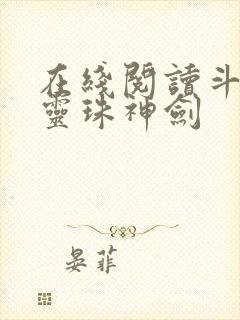 在綫閱讀斗
靈珠神劍
晏菲